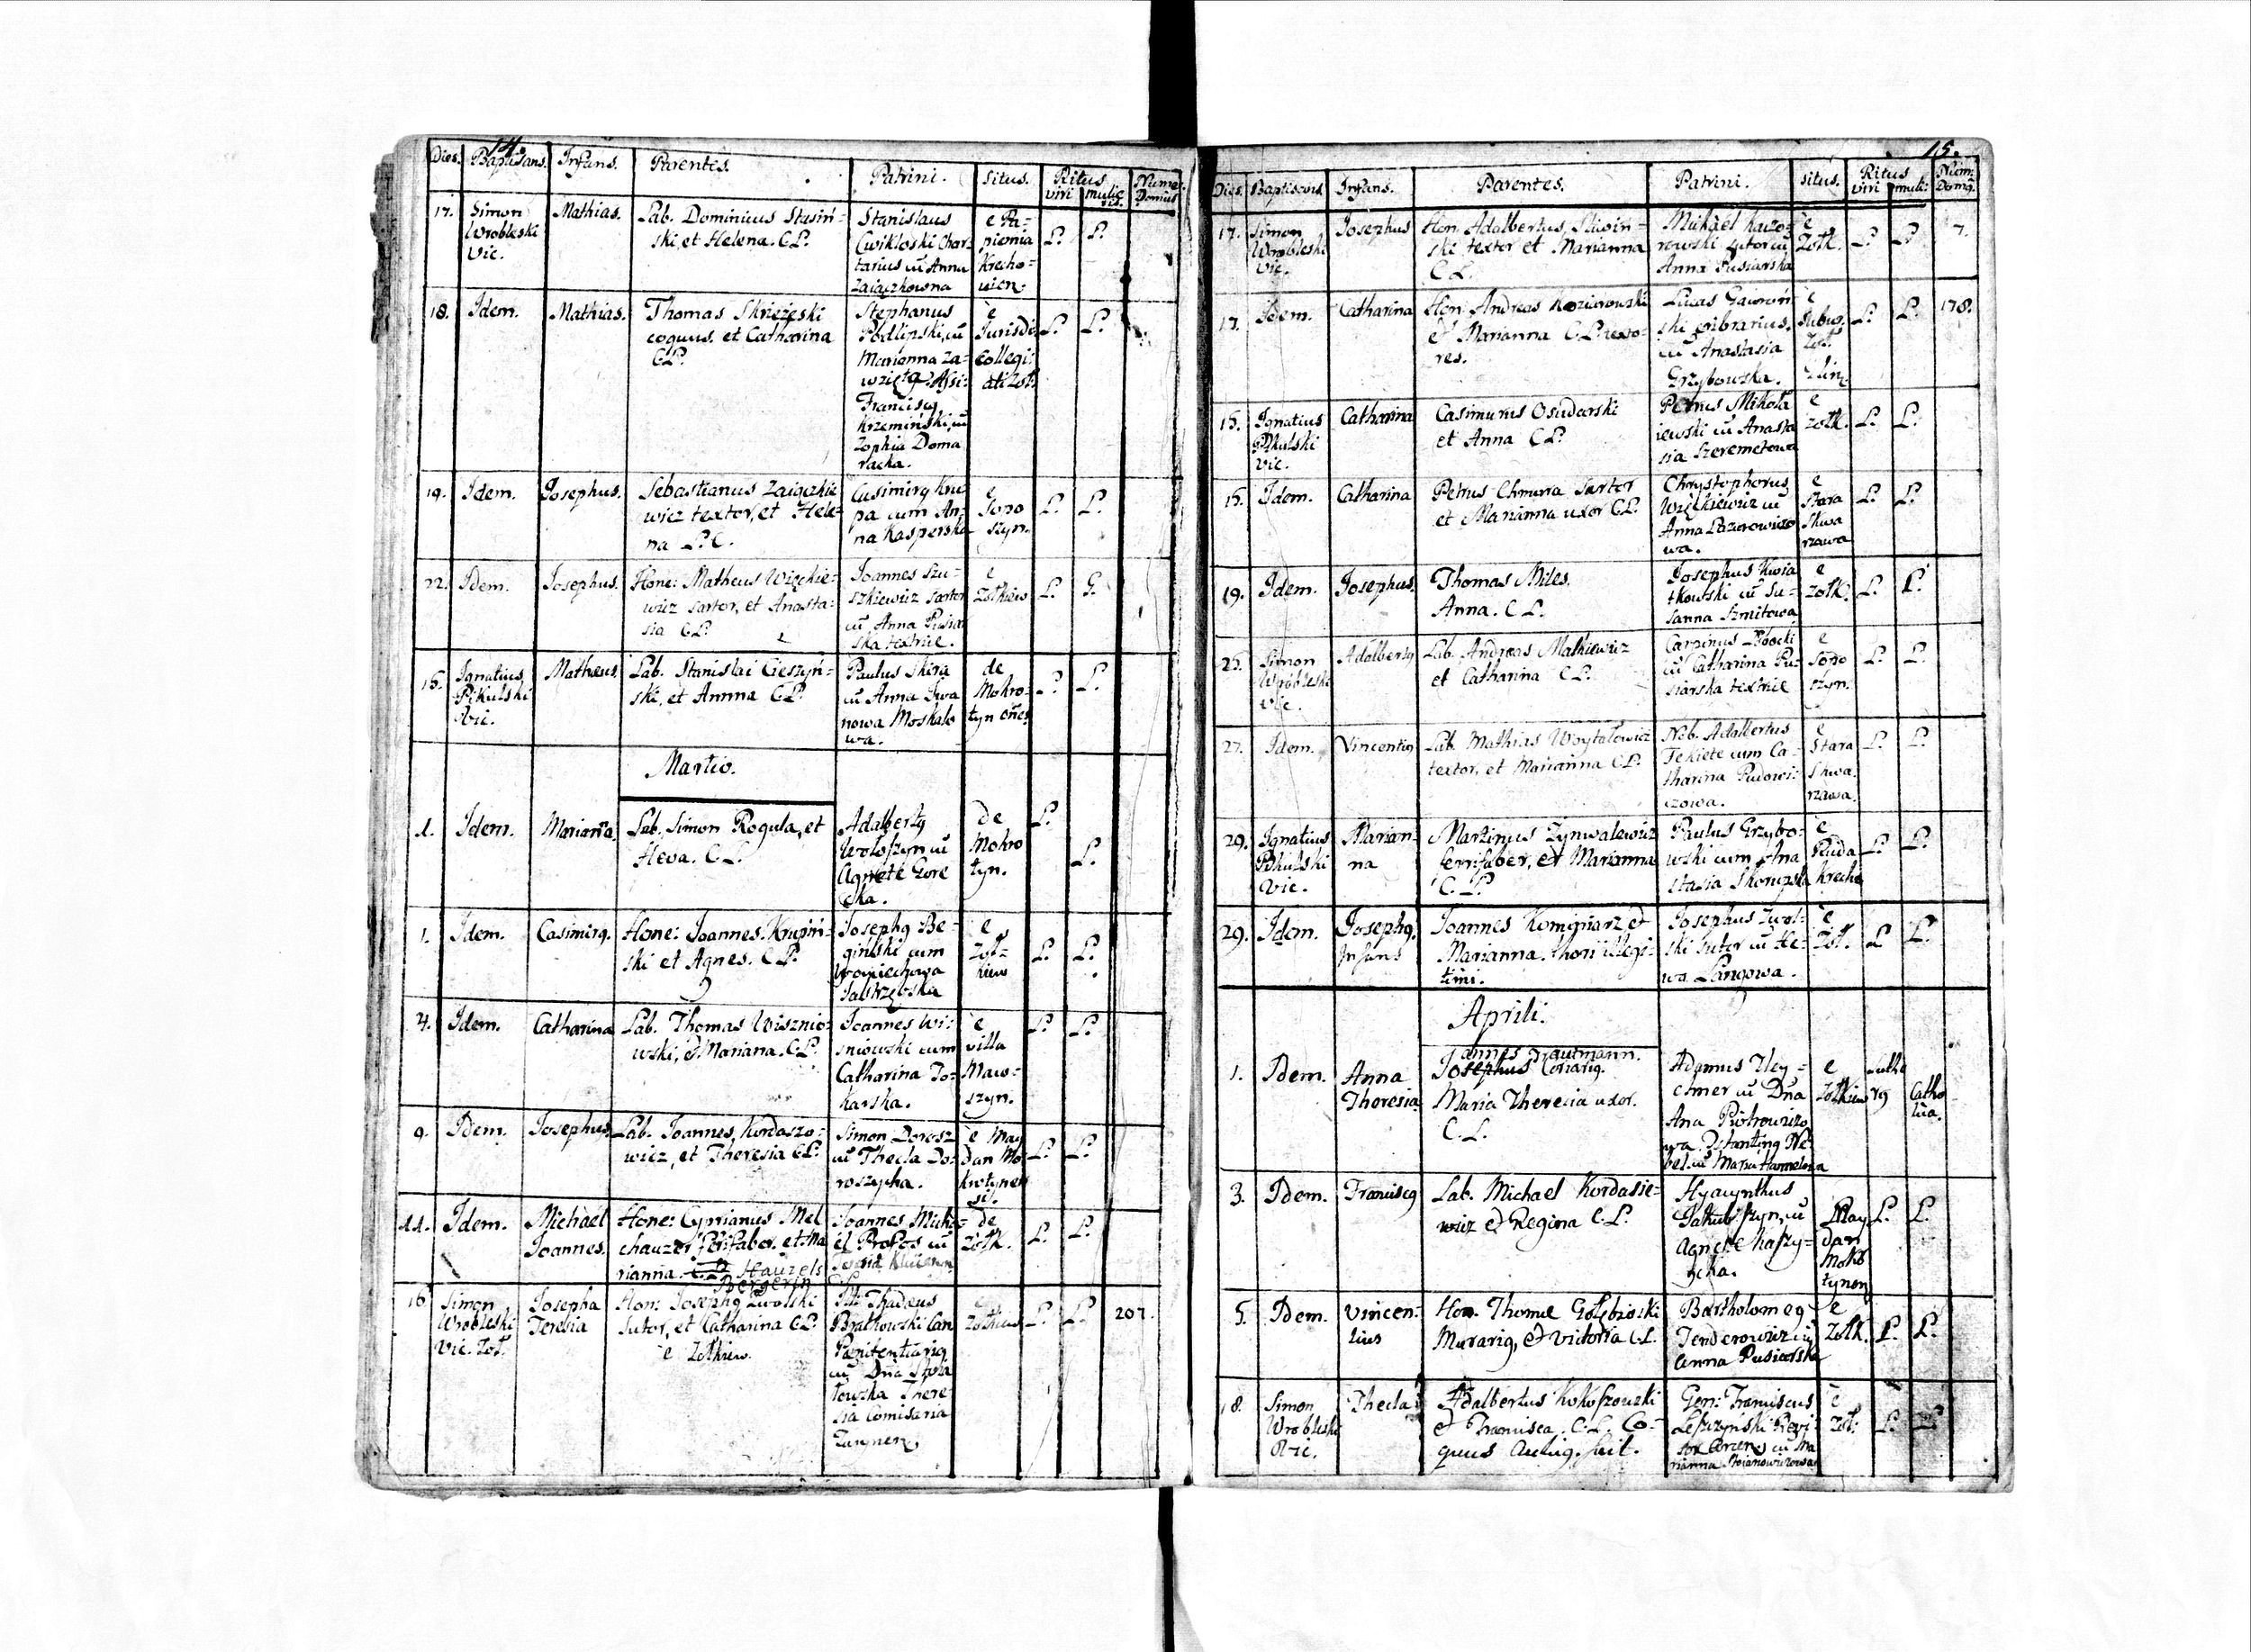 14.
Dies. Baptisans. Infans. Parentes. Patrini. Situs. Ritus viri mulie ris. Nume: Domus
17. Simon Wrobleski Vic. Mathias. Lab. Dominicus Stasiń-
ski, et Helena. C.L.
Stanislaus
Cwikloski Char-
tarius cū Anna
Zaiączkowna
e Pa-
piernia
Krecho-
wien:
L. L.
18. Idem. Mathias. Thomas Skrzeżeski
coquus. et Catharina
C.L.
Stephanus
Podlipski, cū
Marianna Za-
wzięta. Assi:
Franciscꝯ
Krzemiński, cū
Zophia Doma
racka.
è
Jurisdi:
Collegi:
ati Zoł:
L. L.
19. Idem. Josephus. Sebastianus Zaiączkie
wicz textor, et Hele-
na L.C.
Casimirꝯ Kru
pa cum An-
na Kasperska
e
Sopo
szyn.
L. L.
22. Idem. Josephus. Hone: Matheus Więckie-
wicz sartor, et Anasta-
sia C.L.
Joannes Szu-
szkiewicz sartor
cū Anna Pusiar
ska textrice.
e
Zołkiew
L. G.
15. Ignatius Pikulski Vic. Matheus. Lab. Stanislai Cieszyń-
ski, et Annna C.L.
Paulus Skira
cū Anna Iwa
nowa Moskalo
wa.
de
Mokro-
tyn
L. L.
Martio.
1. Idem. Marianna. Lab. Simon Rogula, et
Heva. C.L.
Adalbertꝯ
Wołoszyn cū
Agnete Gore
cka.
De
Mokro
tyn.
L. L.
1. Idem. Casimirꝯ. Hone: Joannes. Krupiń-
ski et Agnes. C.L.
Josephꝯ Be-
giński cum
Woyciechowa
Jastrzębska
e
Zoł-
kiew
L. L.
4. Idem. Catharina Lab. Thomas Wisznio-
wski, et Mariana. C.L.
Joannes Wi-
sniowski cum
Catharina To-
karska.
è
villa
Macо-
szyn.
L. L.
9. Idem. Josephus. Lab. Joannes Kordaszo-
wicz, et Theresia C.L.
Simon Dorosz
cū Thecla Do-
roszycha.
è May
dan Mo-
krotynen
si.
L. L.
11. Idem. Michael Joannes. Hone: Cyprianus Mel
chauzer Ferifaber. et Ma
rianna. Hauzels
Bergerin
Joannes Micha-
el Profos cū
de
Zołk.
L. L.
16 Simon Wrobleski Vic. Zoł. Josepha Teresia Hon: Josephꝯ Zwolski
Sutor, et Catharina C.L.
è Zołkiew.
Thadeus
Bratkowski Can
Paenitentiariꝯ
cū Dna
There-
sia Comisaria
e
Zołkiew
L. L. 207.
15.
Dies. Baptisans. Infans. Parentes. Patrini. situs. Ritus viri muli: Num: Domꝯ.
17. Simon Wrobleski Vic. Josephus Hon. Adalbertus Sliwiń-
ski textor et Marianna
C.L.
Michael Kawo-
rowski sutor cū
Anna Pusiarska
è
Zołk.
L. L. 7.
17. Idem. Catharina Hon. Andreas Kozierowski
et Marianna C.L. uxo-
res.
Lucas Gawroń
ski cribrarius,
cū Anastasia
Grzybowska.
è
subur.
Zoł.
L. L. 178.
15. Ignatius Pikulski Vic. Catharina Casimirus Osudarski
et Anna C.L.
Petrus Mikoła
iewski cū Anasta
sia Szeremetowa
e
Zołk.
L. L.
15. Idem. Catharina Petrus Chmura Sartor
et Marianna uxor C.L.
Chrystophorus
Więckiewicz cū
Anna Lazarowiczo
wa.
e
Stara
Skwa
rzawa
L. L.
19. Idem. Josephus. Thomas Miles.
Anna. C.L.
Josephus Kwia
tkowski cū Su-
sanna Szmitowa
e
Zołk.
L. L.
25. Simon Wrobleski Vic. Adalbertꝯ Lab. Andreas Malkiewicz
et Catharina C.L.
cū Catharina Pu-
siarska textrice
e
Sopo
szyn.
L. L.
27. Idem. Vincentiꝯ Lab. Mathias Woytałowicz
textor, et Marianna C.L.
Nob. Adalbertus
Tekiete cum Ca-
tharina Pudowi-
czowa.
e
Stara
Skwa.
rzawa.
L. L.
29. Ignatius Pikulski Vic. Marian-
na
Martinus Zynwalewicz
ferrifaber, et Marianna
C.L.
Paulus Grzybo-
wski cum Ana
stasia Skorupska
è
Ruda
Krecho
L. L.
29. Idem. Josephꝯ. Infans Joannes Kominiarz et
Marianna. thori illegi-
timi.
Josephus Zwol-
ski Sutor cū He-
wa Langowa.
è
Zoł.
L. L.
Aprili.
1. Idem. Anna
Theresia
Joannes Trautmann.
Josephus Coriariꝯ.
Maria Theresia uxor.
C.L.
Adamus
cū Dna
Ana Piotrowiczo
wa.
e
Zołkiew
Luthe
rꝯ
Catho
lica.
3. Idem. Franciscꝯ Lab. Michael Kordasie-
wicz et Regina C.L.
Hyacynthus
Jakubszyn, cū
Agnete Kaszy-
cka.
May
dan
Mokro
tynen
L. L.
5. Idem. Vincen-
tius
Hon. Thomae Gołębioski
Murariꝯ, et Victoria C.L.
Bartholomeꝯ
Tenderowicz cū
Anna Pusiarska
e
Zołk.
L. L.
8. Simon Wrobleski Vic. Thecla Adalbertus Kokoszowski
et Francisca. C.L. Co-
quus fuit.
Gen: Franciscus
Leszczyński
cū Ma
rianna Stoianowiczowa
è
Zoł:
L. L.